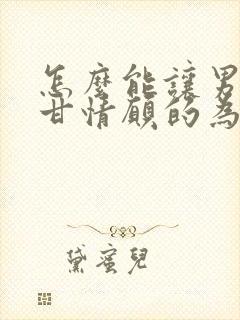 怎麼能讓男
甘情願的為
黛蜜兒